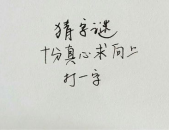 猜字谜
十分真心求向上
打一字